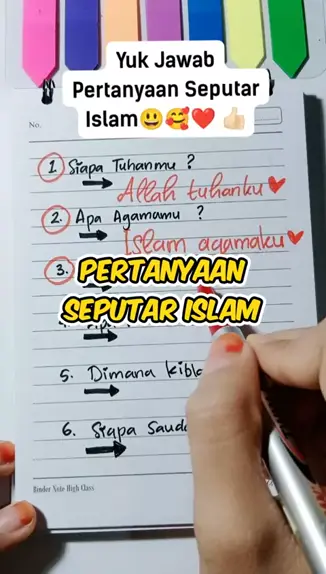 Yuk Jawab
Pertanyaan Seputar
Islam😃🥰❤️👍🏻
No.
1. Siapa Tuhanmu ?
Allah tuhanku ♥
2. Apa Agamamu ?
Islam agamaku ♥
3.
PERTANYAAN
SEPUTAR ISLAM
5. Dimana kibla
6. Siapa Sauda
Binder Note High Class